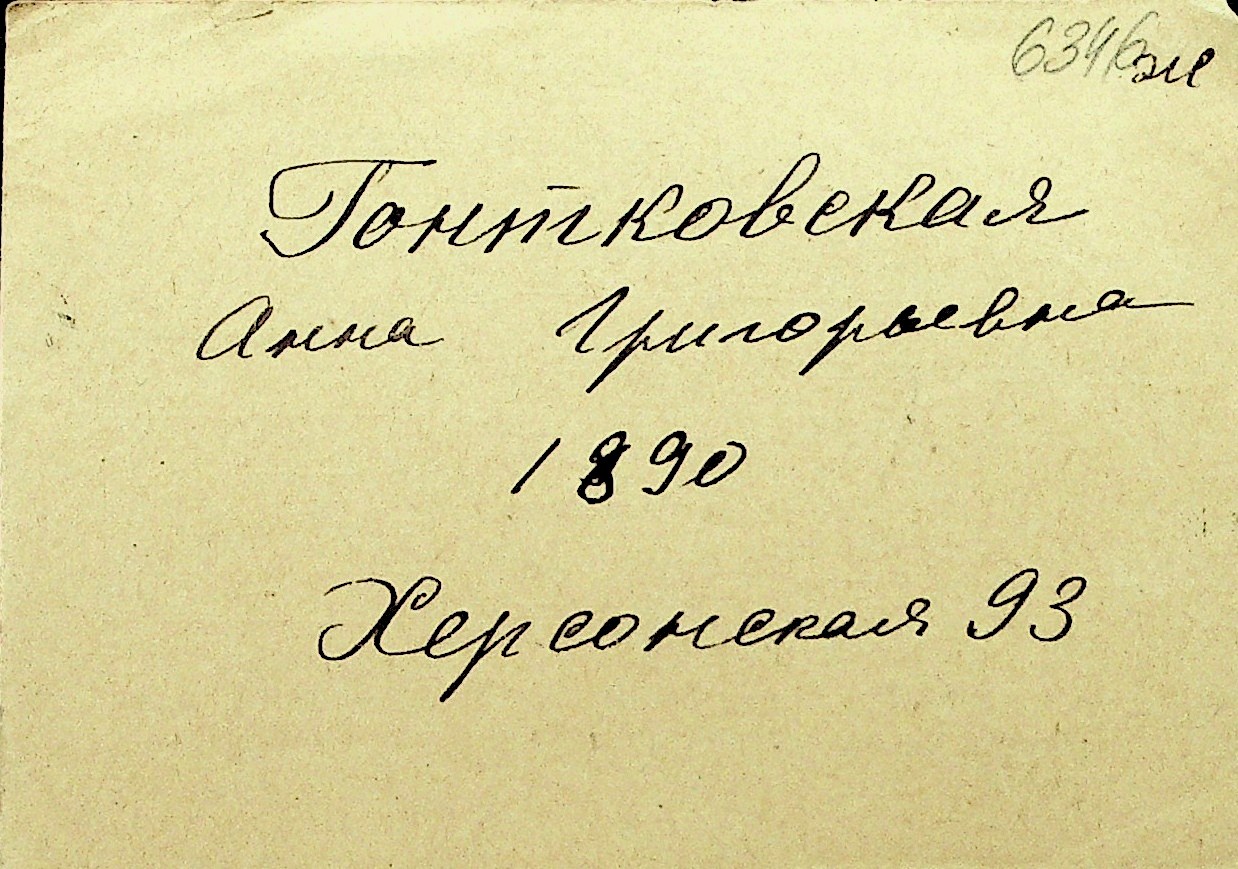 6346 ж
Гонтковская
Анна Григорьевна
1890
Херсонская 93